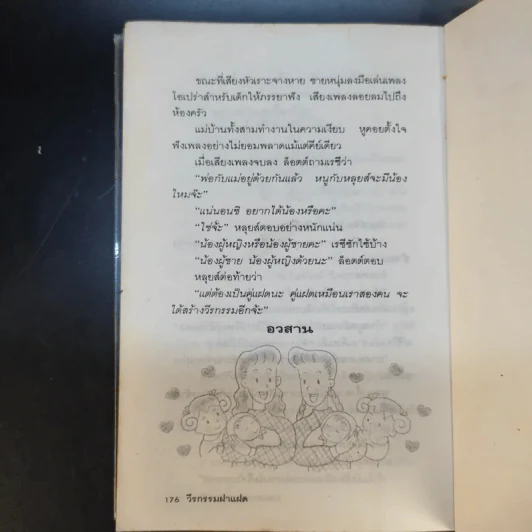 ขณะที่เสียงหัวเราะจางหาย ชายหนุ่มลงมือเล่นเพลง
โอเปร่าสำหรับเด็กให้ภรรยาฟัง เสียงเพลงลอยลมไปถึง
ห้องครัว
แม่บ้านทั้งสามทำงานในความเงียบ หูคอยตั้งใจ
ฟังเพลงอย่างไม่ยอมพลาดแม้แต่คีย์เดียว
เมื่อเสียงเพลงจบลง ล็อตต์ถามเรซีว่า
“พ่อกับแม่อยู่ด้วยกันแล้ว หนูกับหลุยส์จะมีน้อง
ไหมจ๊ะ”
“แน่นอนซิ อยากได้น้องหรือคะ”
“ใช่จ้ะ” หลุยส์ตอบอย่างหนักแน่น
“น้องผู้หญิงหรือน้องผู้ชายคะ” เรซีซักไซ้บ้าง
“น้องผู้ชาย น้องผู้หญิงด้วยนะ” ล็อตต์ตอบ
หลุยส์ต่อท้ายว่า
“แต่ต้องเป็นคู่แฝดนะ คู่แฝดเหมือนเราสองคน จะ
ได้สร้างวีรกรรมอีกจ้ะ”
อวสาน
176 วีรกรรมฝาแฝด